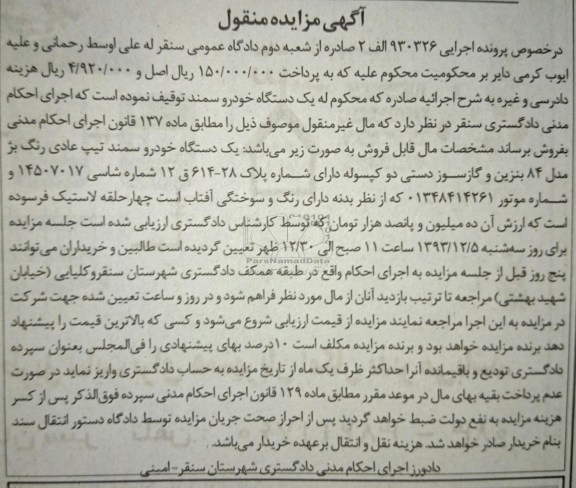 آگهی مزایده منقول
درخصوص پرونده اجرایی ۹۳۰۳۲۶ الف ۲ صادره از شعبه دوم دادگاه عمومی سنقر له علی اوسط رحمانی و علیه
ایوب کرمی دایر بر محکومیت محکوم علیه که به پرداخت ۱۵۰/۰۰۰/۰۰۰ ریال اصل و ۴/۹۲۰/۰۰۰ ریال هزینه
دادرسی و غیره به شرح اجرائیه صادره که محکوم له یک دستگاه خودرو سمند توقیف نموده است که اجرای احکام
مدنی دادگستری سنقر در نظر دارد که مال غیرمنقول موصوف ذیل را مطابق ماده ۱۳۷ قانون اجرای احکام مدنی
بفروش برساند مشخصات مال قابل فروش به صورت زیر می‌باشد: یک دستگاه خودرو سمند تیپ عادی رنگ بژ
مدل ۸۴ بنزین و گازسوز دستی دو کپسوله دارای شماره پلاک ۲۸-۶۱۴ ق ۱۲ شماره شاسی ۱۴۵۰۷۰۱۷ و
شماره موتور ۰۱۳۴۸۴۱۴۲۶۱ که از نظر بدنه دارای رنگ و سوختگی آفتاب است چهارحلقه لاستیک فرسوده
است که ارزش آن ده میلیون و پانصد هزار تومان که توسط کارشناس دادگستری ارزیابی شده است جلسه مزایده
برای روز سه‌شنبه ۱۳۹۳/۱۲/۵ ساعت ۱۱ صبح الی ۱۲/۳۰ ظهر تعیین گردیده است طالبین و خریداران می‌توانند
ParsNamadData
پنج روز قبل از جلسه مزایده به اجرای احکام واقع در طبقه همکف دادگستری شهرستان سنقروکلیایی (خیابان
شهید بهشتی) مراجعه تا ترتیب بازدید آنان از مال مورد نظر فراهم شود و در روز و ساعت تعیین شده جهت شرکت
در مزایده به این اجرا مراجعه نمایند مزایده از قیمت ارزیابی شروع می‌شود و کسی که بالاترین قیمت را پیشنهاد
دهد برنده مزایده خواهد بود و برنده مزایده مکلف است ۱۰درصد بهای پیشنهادی را فی‌المجلس بعنوان سپرده
دادگستری تودیع و باقیمانده آنرا حداکثر ظرف یک ماه از تاریخ مزایده به حساب دادگستری واریز نماید در صورت
عدم پرداخت بقیه بهای مال در موعد مقرر مطابق ماده ۱۲۹ قانون اجرای احکام مدنی سپرده فوق‌الذکر پس از کسر
هزینه مزایده به نفع دولت ضبط خواهد گردید پس از احراز صحت جریان مزایده توسط دادگاه دستور انتقال سند
بنام خریدار صادر خواهد شد. هزینه نقل و انتقال برعهده خریدار می‌باشد.
دادورز اجرای احکام مدنی دادگستری شهرستان سنقر-امینی